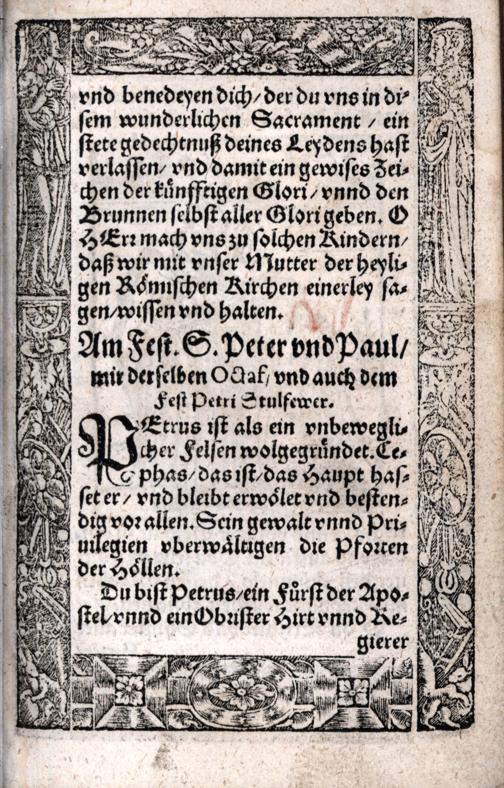 vnd benedeyen dich/ der du vns in di-
sem wunderlichen Sacrament / ein
stete gedechtnuß deines Leydens hast
verlassen/ vnd damit ein gewises Zei-
chen der künfftigen Glori/ vnnd den
Brunnen selbst aller Glori geben. O
HErr mach vns zu solchen Kindern/
daß wir mit vnser Mutter der heyli-
gen Römischen Kirchen einerley sa-
gen/wissen vnd halten.
Am Fest. S. Peter vnd Paul/
mit derselben Octaf/ vnd auch dem
Fest Petri Stulfewer.
PEtrus ist als ein vnbewegli-
cher Felsen wolgegründet. Ce-
phas/das ist/das Haupt has-
set er/ vnd bleibt erwölet vnd besten-
dig vor allen. Sein gewalt vnnd Pri-
uilegien vberwältigen die Pforten
der Höllen.
Du bist Petrus/ein Fürst der Apo-
stel/vnnd ein Obrister Hirt vnnd Re-
gierer